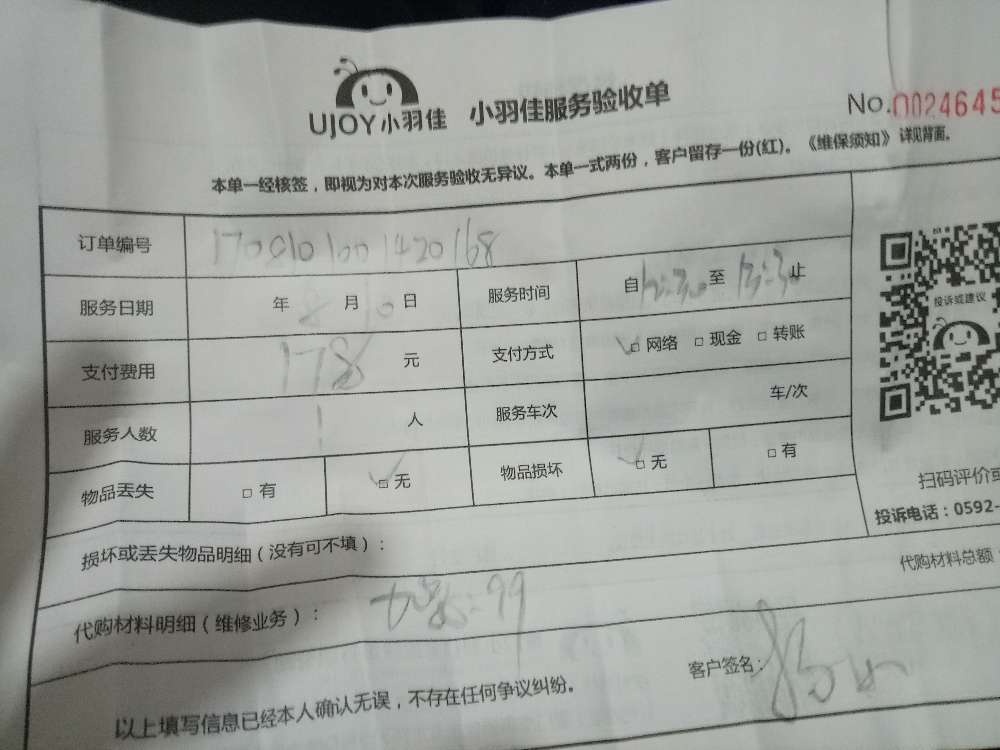 UJOY小羽佳 小羽佳服务验收单 No.0024645
本单一经核签，即视为对本次服务验收无异议。本单一式两份，客户留存一份(红)。《维保须知》详见背面。
订单编号 1700101001420168
服务日期 年 8 月 10 日 服务时间 自 12:30 至 13:30 止
支付费用 178 元 支付方式 ☑网络 □现金 □转账
服务人数 1 人 服务车次 车/次
物品丢失 □有 ☑无 物品损坏 ☑无 □有
投诉或建议
扫码评价或
投诉电话：0592-
损坏或丢失物品明细（没有可不填）：
代购材料总额
代购材料明细（维修业务）： 99
客户签名：
以上填写信息已经本人确认无误，不存在任何争议纠纷。